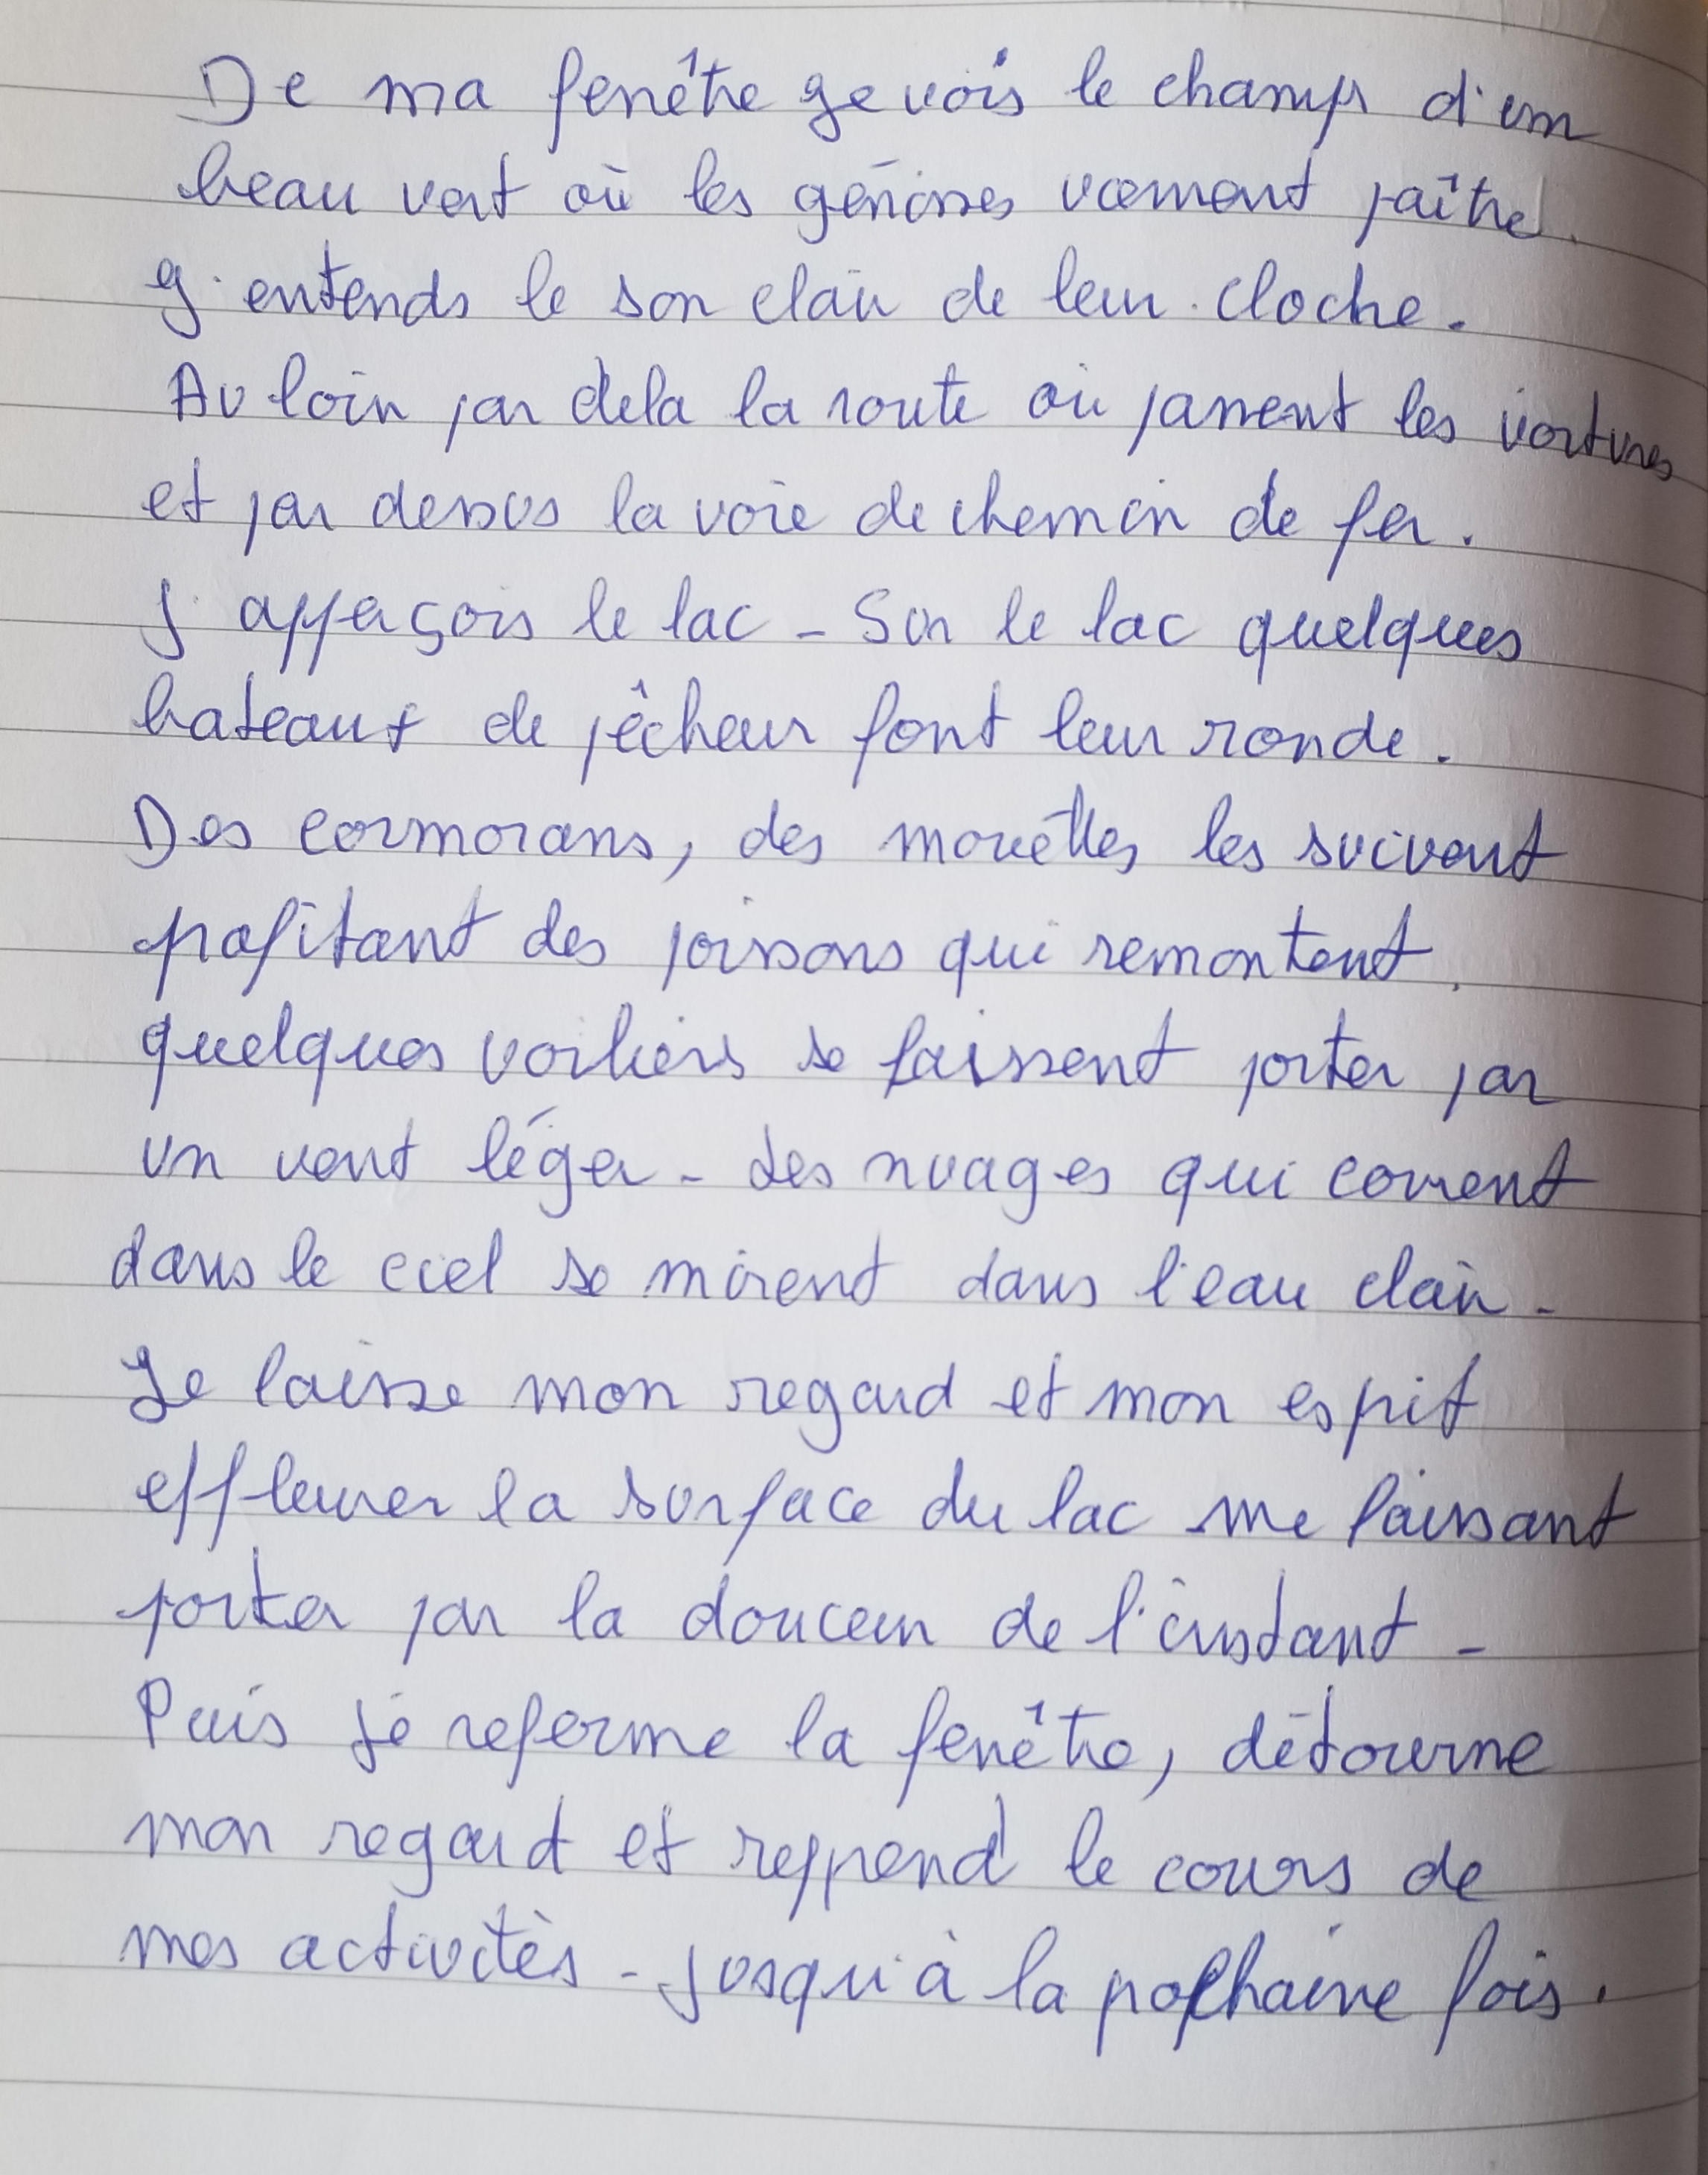 De ma fenêtre je vois le champ d'un
beau vert où les génisses viennent paître.
J'entends le son clair de leur cloche.
Au loin par dela la route où passent les voitures
et par dessus la voie de chemin de fer.
J'apperçois le lac - Sur le lac quelques
bateaux de pêcheur font leur ronde.
Des cormorans, des mouettes les suivent
profitant des poissons qui remontent.
quelques voiliers se laissent porter par
un vent léger - Les nuages qui courent
dans le ciel se mirent dans l'eau clair -
Je laisse mon regard et mon esprit
effleurer la surface du lac me laissant
porter par la douceur de l'instant -
Puis je referme la fenêtre, détourne
mon regard et reprend le cours de
mes activités - jusqu'à la prochaine fois.